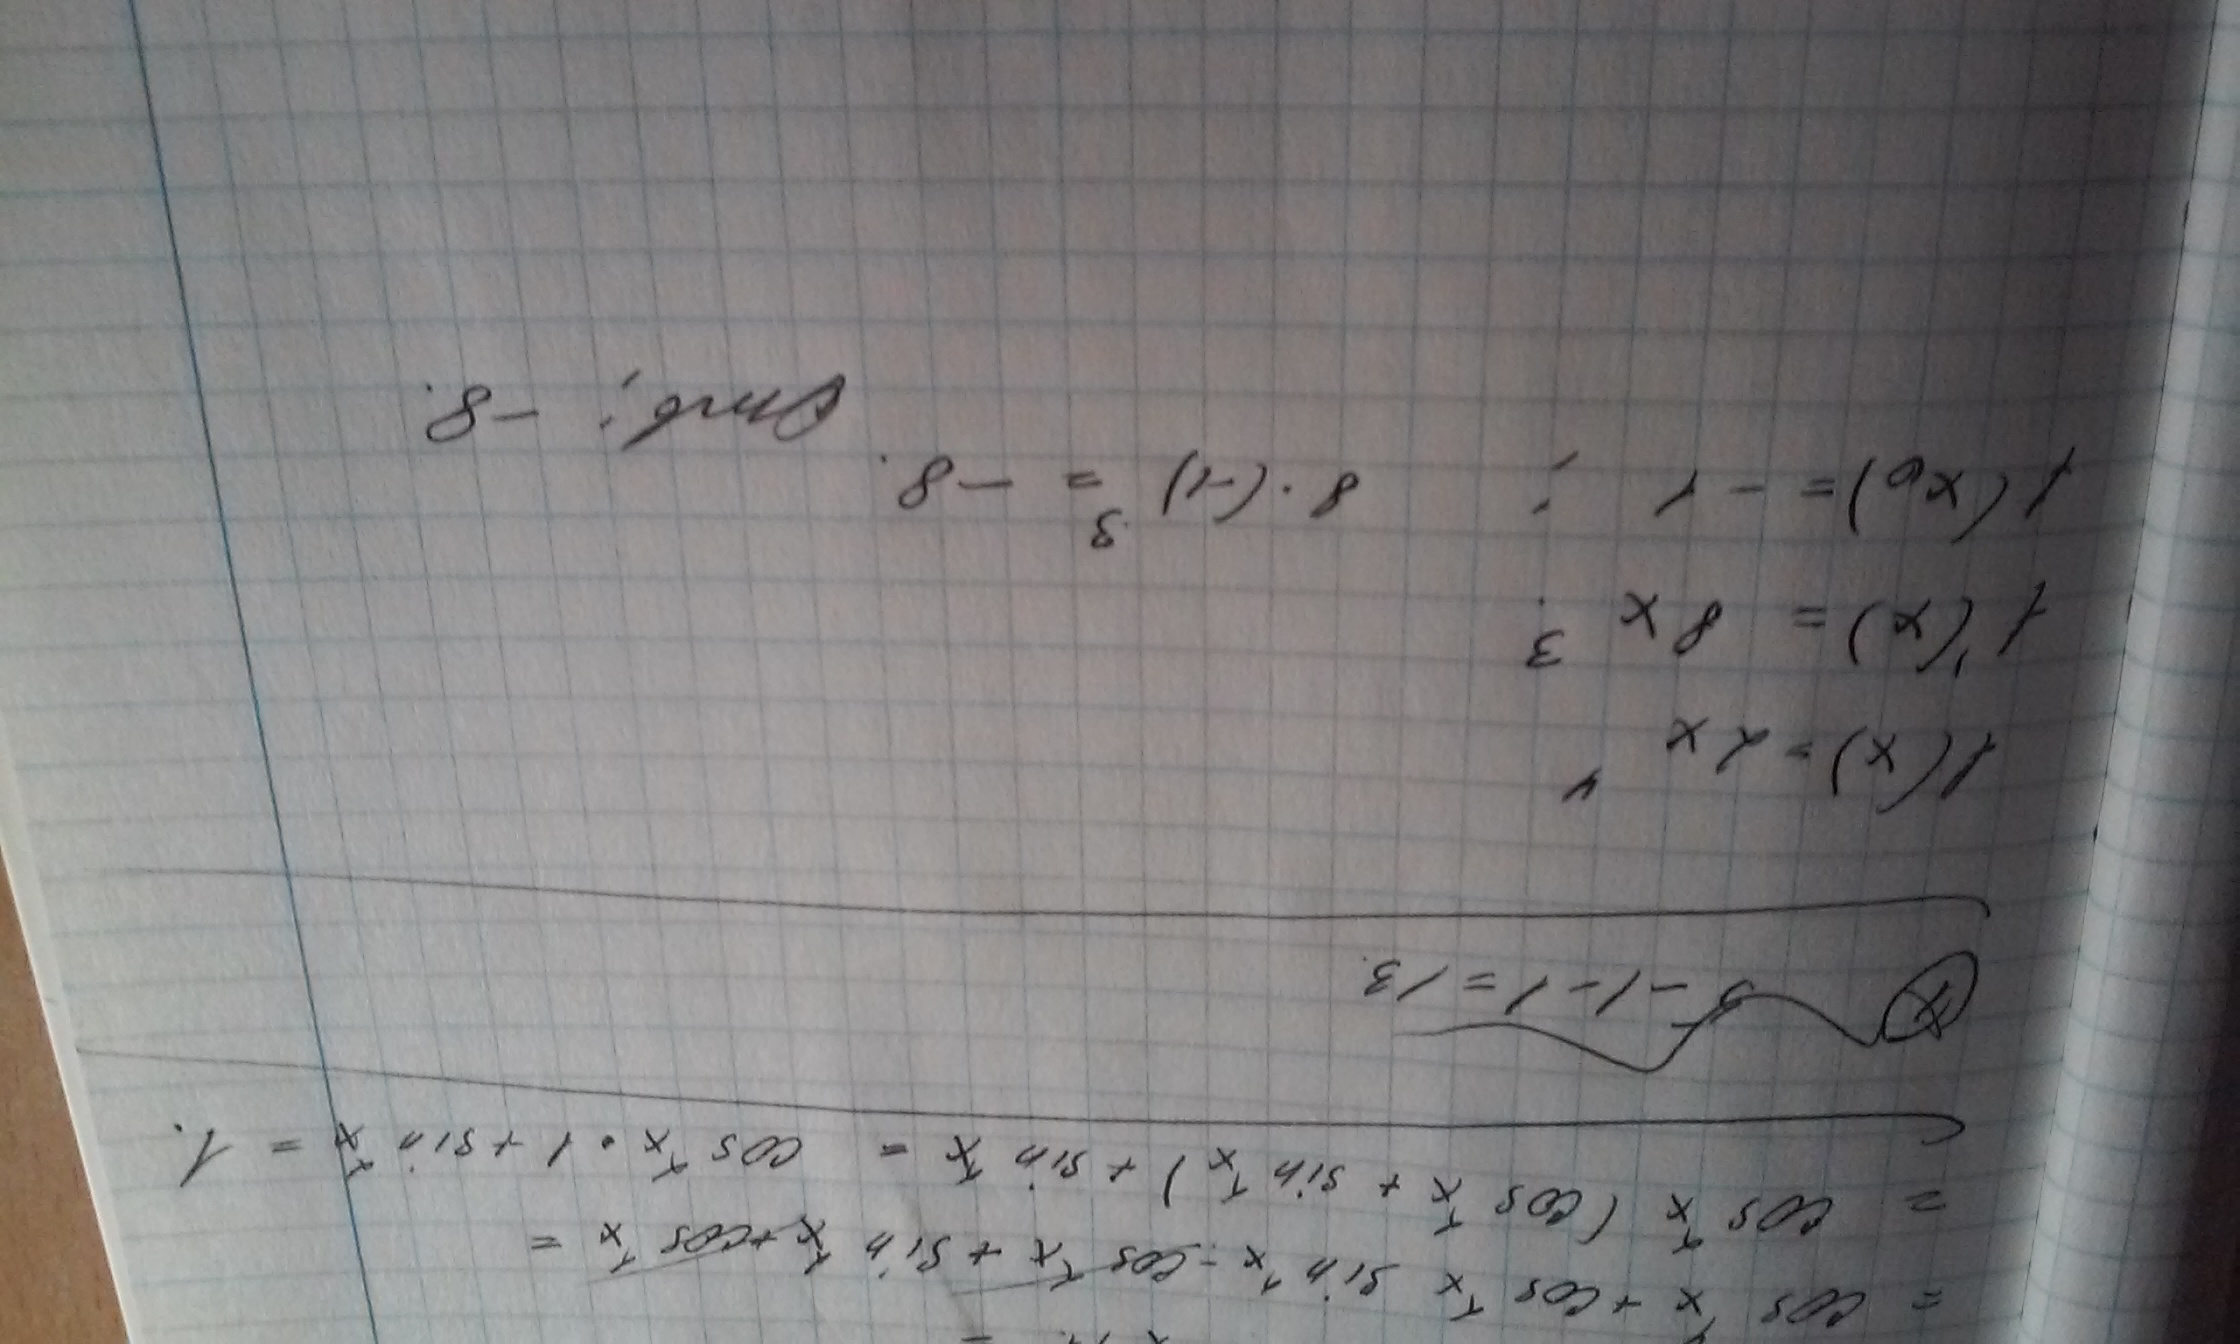 = cos⁴x + cos²x sin²x - cos²x + sin²x + cos²x =
= cos²x (cos²x + sin²x) + sin²x = cos²x • 1 + sin²x = 1.
- 1 - 1 = 13
f(x) = 2x⁴
f'(x) = 8x³.
f(x₀) = -1 ; 8·(-1)³ = -8.
Отв: -8.